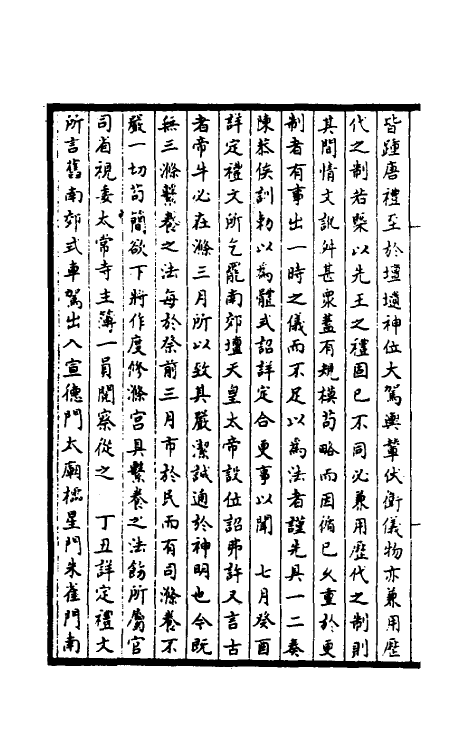 皆踵唐禮至於壇壝神位大駕輿輦仗衛儀物亦兼用歷
代之制若槩以先王之禮固已不同必兼用歷代之制則
其間情文訛舛甚衆蓋有規模苟略而因循已久重於更
制者有事出一時之儀而不足以為法者謹先具一二奏
陳恭俟訓勑以為體式詔詳定合更事以聞　七月癸酉
詳定禮文所乞罷南郊壇天皇太帝設位詔弗許又言古
者帝牛必在滌三月所以致其嚴潔誠通於神明也今既
無三滌繫養之法每於祭前三月市於民而有司滌養不
嚴一切苟簡欲下將作度修滌宮具繫養之法飭所屬官
司省視委太常寺主簿一員閱察從之　丁丑詳定禮文
所言舊南郊式車駕出入宣德門太廟櫺星門朱雀門南